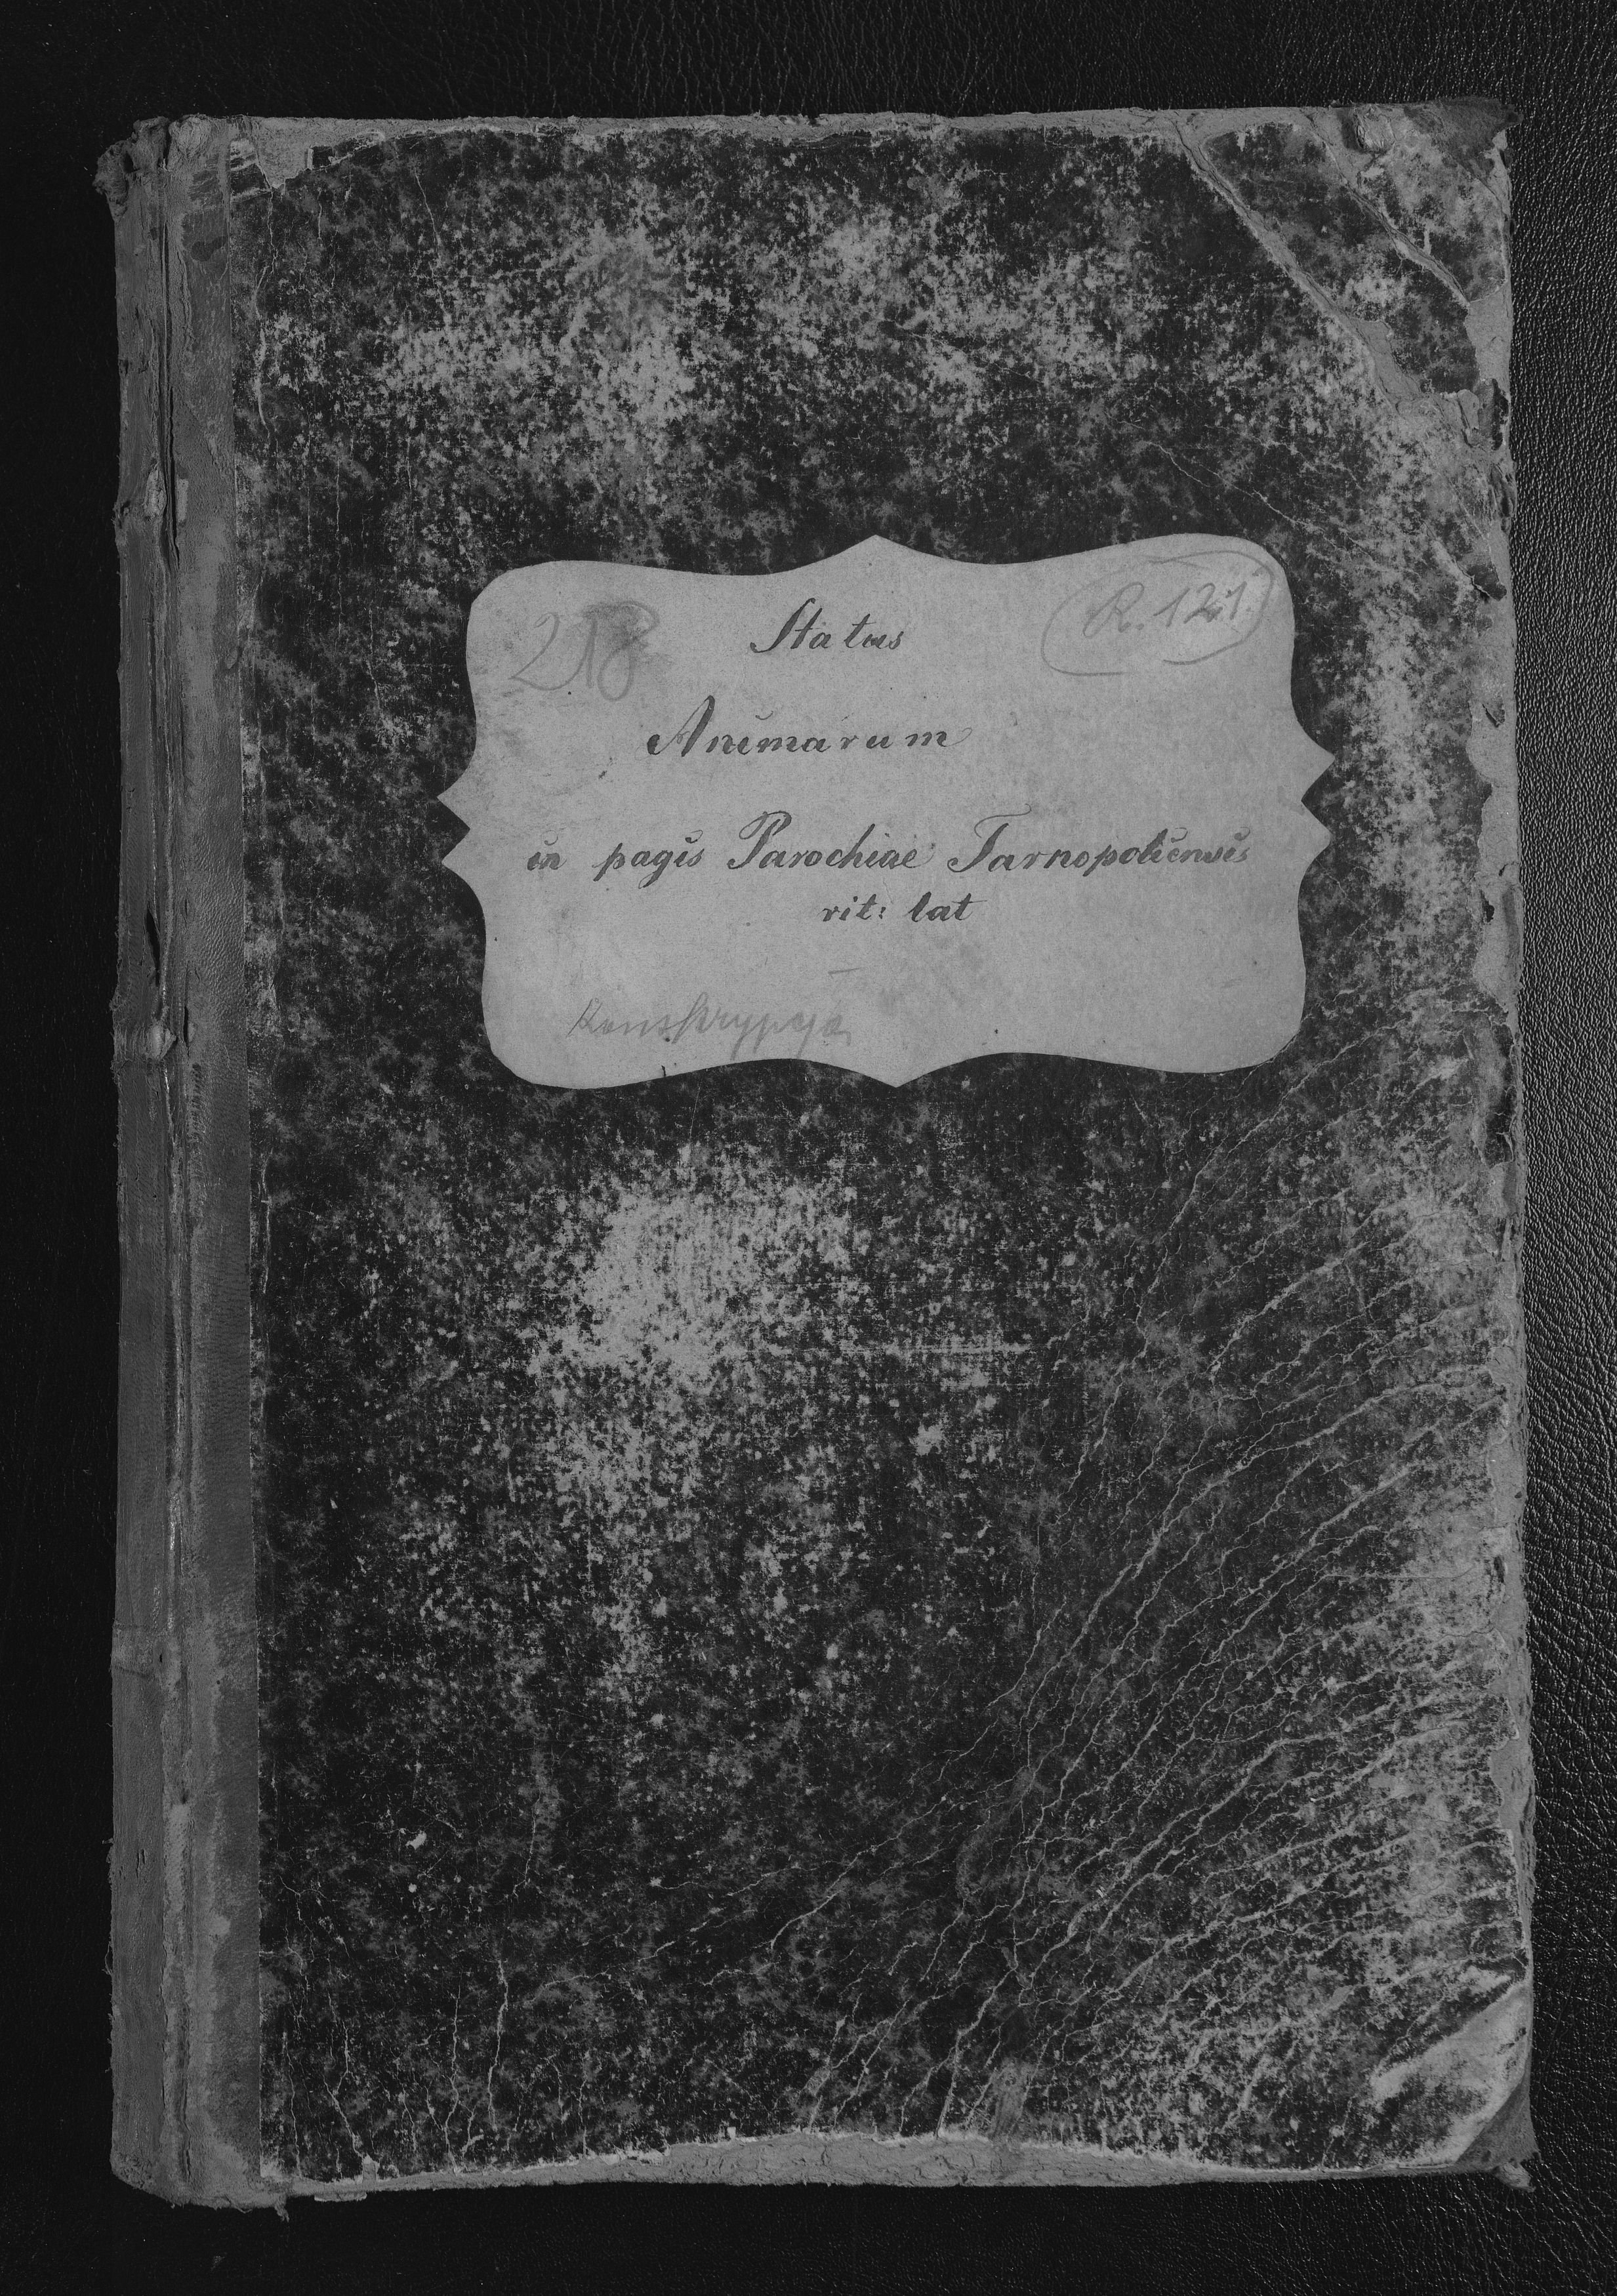 218
R. 121.
Status
Animarum
in pagis Parochiae Tarnopoliensis
rit: lat
Konskrypcja